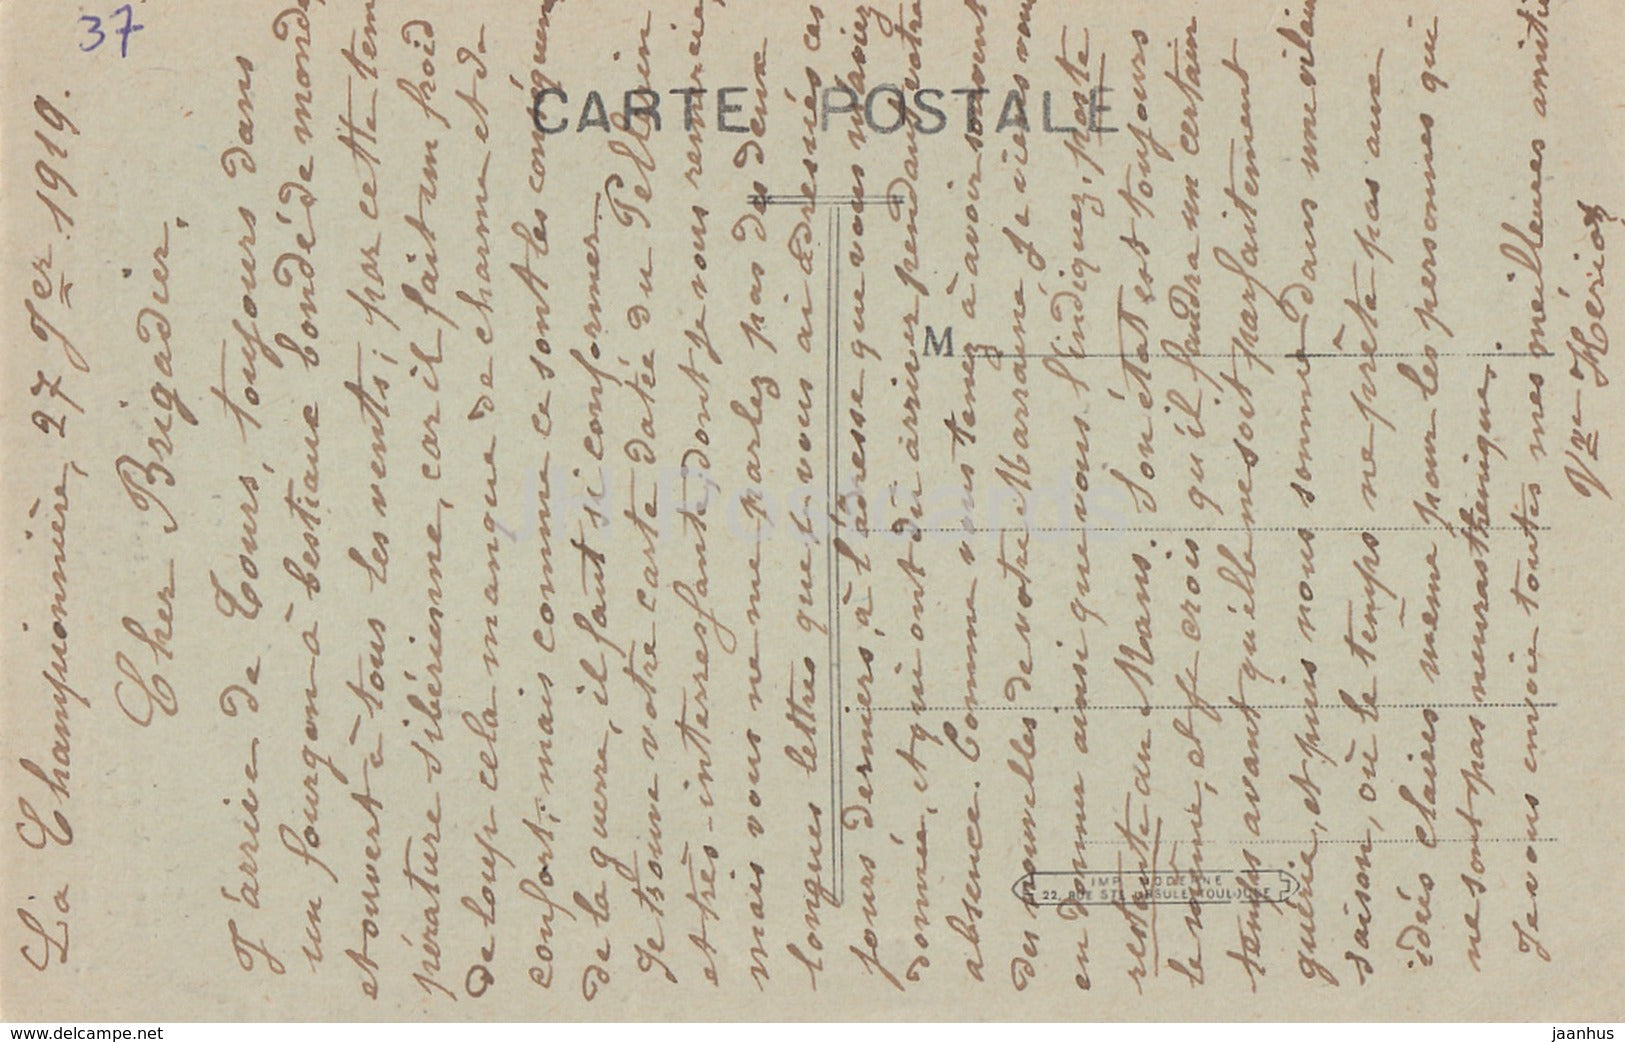 37
La Championnière, 27 Jer 1919.
Cher Brigadier,
J'arrive de Tours, toujours dans
un fourgon à bestiaux bondé de monde,
et ouvert à tous les vents; par cette tem
pérature sibérienne, car il fait un froid
de loup cela manque de charme et de
confort; mais comme ce sont les conséquen
de la guerre, il faut si conformer.
Je trouve votre carte datée du Pellerin
et très-interressante, dont je vous remercie,
mais vous ne me parlez pas des deux
longues lettres que je vous ai adressées ces
jours derniers, à l'adresse que vous m'aviez
donnée, et qui ont dû arriver pendant votre
absence. Comme vous tenez à avoir souvent
des nouvelles de votre Marraine, je viens vous
en donner ainsi que vous l'indiquez, poste
restante au Mans. Son état est toujours
le même, et je crois qu'il faudra un certain
temps avant qu'elle ne soit parfaitement
guérie, et puis nous sommes dans une vilaine
saison, où le temps ne prête pas aux
idées claires même pour les personnes qui
ne sont pas neurasthénique.
Je vous envoie toutes mes meilleures amitiés
Vve Hériot
CARTE POSTALE
M
IMP. MODERNE
22, RUE STE URSULE, TOULOUSE
JH Postcards
www.delcampe.net
jaanhus